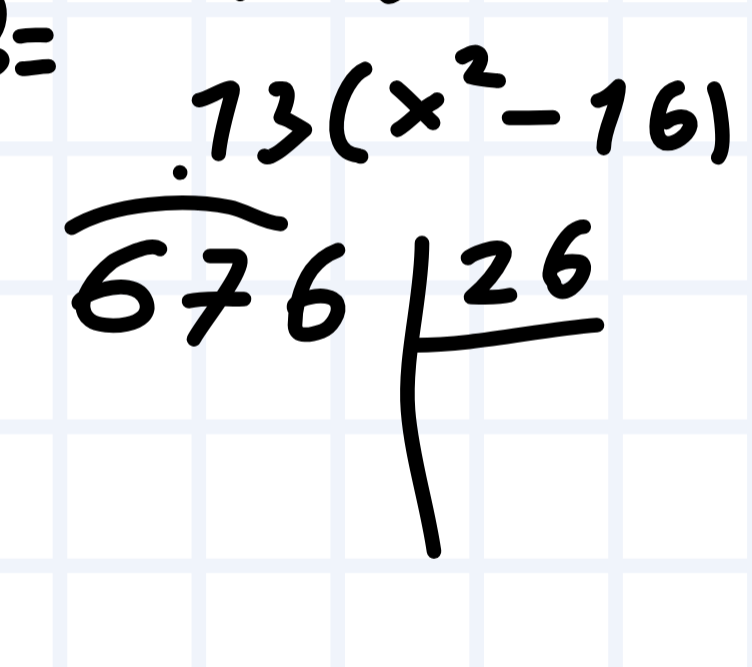 =
13(x²-16)
676 | 26